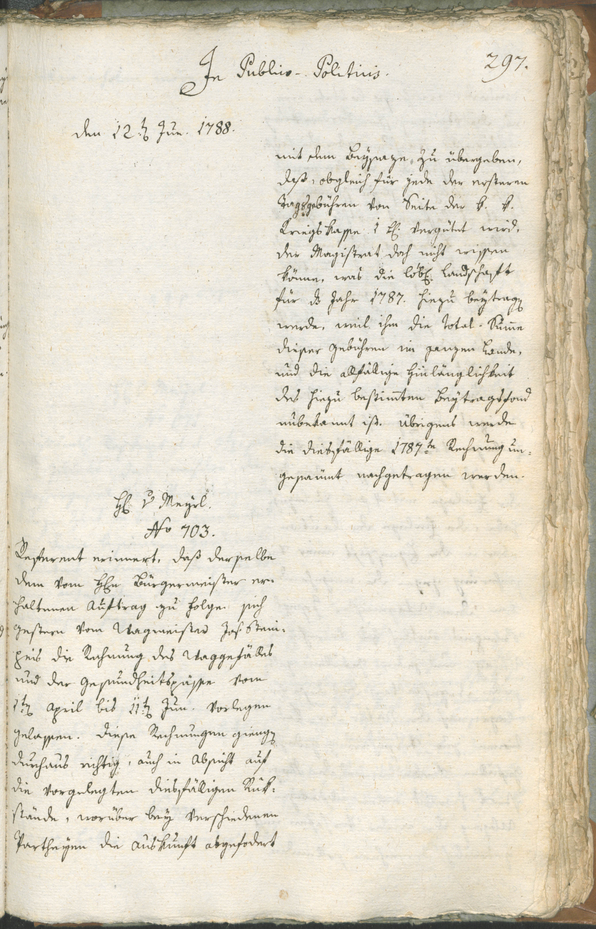 In Publico-Politicis.
297.
den 12t Jun. 1788.
mit dem Beysaze, zu übergeben,
daß, obgleich für jede der ersteren
Taggebühren von Seite der k. k.
Kriegskasse 1 vergütet wird,
der Magistrat doch nicht wissen
könne, was die löbl. Landschaft
für ds Jahr 1787. hiezu beytragen
werde, weil ihm die Total-Summe
dieser Gebühren im ganzen Lande,
und die allfällige Hinlänglichkeit
des hiezu bestimmten Beytragsfond
unbekannt ist. Übrigens werde
die diesfällige 1787te Rechnung un-
gesaumt nachgetragen werden.
H. v Meyrl.
No 703.
Referent erinnert, daß derselbe
dem vom Hen Bürgermeister er-
haltenen Auftrag zu Folge sich
gestern vom Wagmeister Jos. Stein-
zeis die Rechnung des Waggefälls
und der Gesundheitspässe vom
1t April bis 11t Jun. vorlegen
gelassen. Diese Rechnungen giengen
durchaus richtig, auch in Absicht auf
die vorgelegten diesfälligen Rük-
stände, worüber bey verschiedenen
Partheyen die Auskunft abgefodert